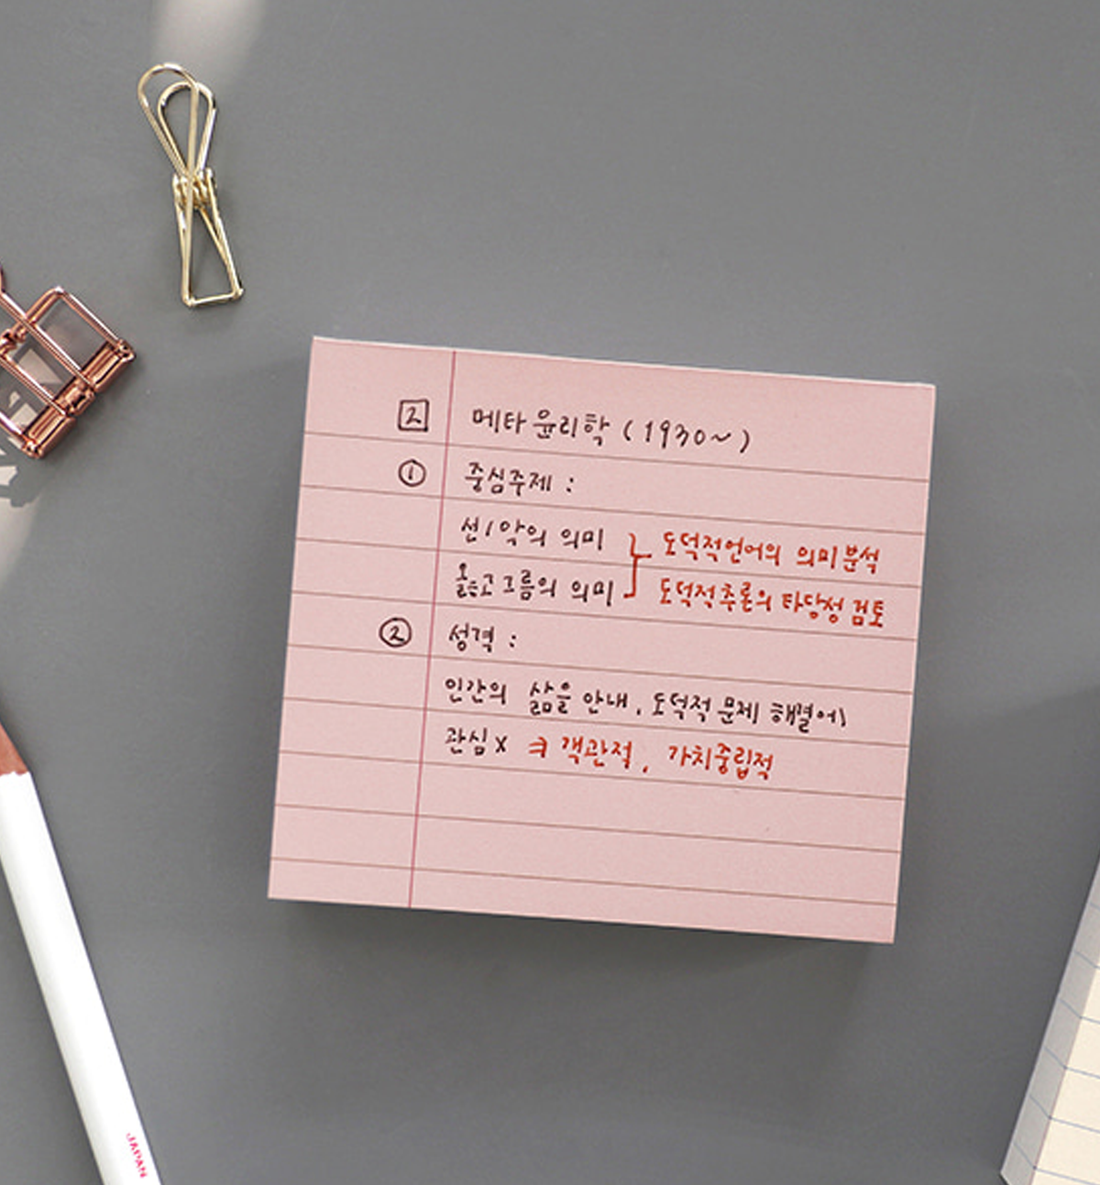 2 메타 윤리학 (1930~)
① 중심주제 :
선/악의 의미 } 도덕적언어의 의미분석
옳음고 그름의 의미 } 도덕적추론의 타당성 검토
② 성격 :
인간의 삶을 안내, 도덕적 문제 해결에
관심 X ⇒ 객관적, 가치중립적
JAPAN